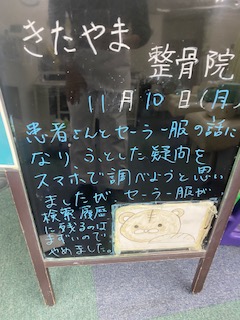 きたやま
整骨院
11月10日(月)
患者さんとセーラー服の話に
なり、ふとした疑問を
スマホで調べようと思い
ましたが セーラー服が
検索履歴
に残るのは
まずいので
やめました。